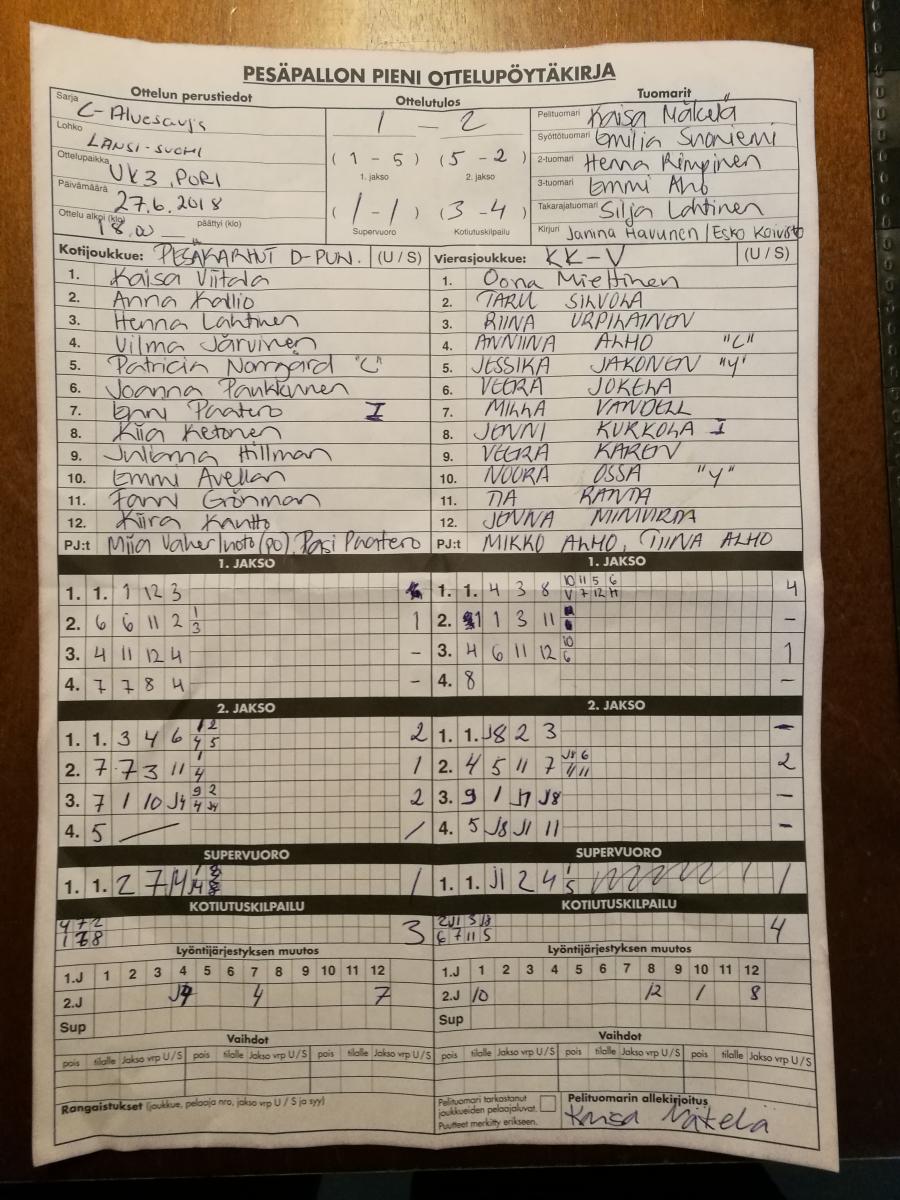 PESÄPALLON PIENI OTTELUPÖYTÄKIRJA
Ottelun perustiedot
Sarja C-Aluesarja
Lohko LÄNSI-SUOMI
Ottelupaikka UK3, PORI
Päivämäärä 27.6.2018
Ottelu alkoi (klo) 18.00 päättyi (klo)
Ottelutulos
1 — 2
(1 - 5) (5 - 2)
1. jakso 2. jakso
(1 - 1) (3 - 4)
Supervuoro Kotiutuskilpailu
Tuomarit
Pelituomari Kaisa Mäkelä
Syöttötuomari Emilia Suoniemi
2-tuomari Henna Rimpinen
3-tuomari Emmi Aho
Takarajatuomari Silja Lahtinen
Kirjuri Janina Havunen / Esko Koivisto
Kotijoukkue: PESÄKARHUT D-PUN. (U / S)
1. Kaisa Viitala
2. Anna Kallio
3. Henna Lahtinen
4. Vilma Järvinen
5. Patricia Norrgård "C"
6. Joanna Paukkunen
7. Enni Paatero I
8. Kiia Ketonen
9. Julianna Hillman
10. Emmi Avellan
11. Fanni Grönman
12. Kiira Kantto
PJ:t Miia Vaherluoto (po), Pasi Paatero
Vierasjoukkue: KK-V (U / S)
1. Oona Miettinen
2. TARU SILVOLA
3. RIINA URPILAINEN
4. ANNIINA ALHO "C"
5. JESSIKA JAKONEN "Y"
6. VEERA JOKELA
7. MILLA VANDELL
8. JENNI KURKOLA I
9. VEERA KAREN
10. NOORA OSSA "Y"
11. TIA RANTA
12. JENNA
PJ:t MIKKO ALHO, TIINA ALHO
1. JAKSO
1. 1. 1 12 3
2. 6 6 11 2 1 3 1
3. 4 11 12 4 -
4. 7 7 8 4 -
1. JAKSO
1. 1. 4 3 8 10 11 5 6 V 7 12 H 4
2. 1 1 3 11 -
3. 4 6 11 12 10 6 1
4. 8 -
2. JAKSO
1. 1. 3 4 6 1 2 4 5 2
2. 7 7 3 11 1 4 1
3. 7 1 10 J4 9 2 4 J4 2
4. 5 /
2. JAKSO
1. 1. J8 2 3 -
2. 4 5 11 7 J8 6 2
3. 9 1 J7 J8 -
4. 5 J8 J1 11 -
SUPERVUORO
1. 1. 2 7 1
SUPERVUORO
1. 1. J1 2 4 1 5 1
KOTIUTUSKILPAILU
4 7 2 3
KOTIUTUSKILPAILU
2 J1 3 J8 4
6 7 11 5
Lyöntijärjestyksen muutos
1.J 1 2 3 4 5 6 7 8 9 10 11 12
2.J 4 7
Sup
Lyöntijärjestyksen muutos
1.J 1 2 3 4 5 6 7 8 9 10 11 12
2.J 10 12 1 8
Sup
Vaihdot
pois tilalle Jakso vrp U / S pois tilalle Jakso vrp U / S pois tilalle Jakso vrp U / S
Vaihdot
pois tilalle Jakso vrp U / S pois tilalle Jakso vrp U / S pois tilalle Jakso vrp U / S
Rangaistukset (joukkue, pelaaja nro, jakso vrp U / S ja syy)
Pelituomari tarkastanut
joukkueiden pelaajaluvat.
Puutteet merkitty erikseen.
Pelituomarin allekirjoitus
Kaisa Mäkelä